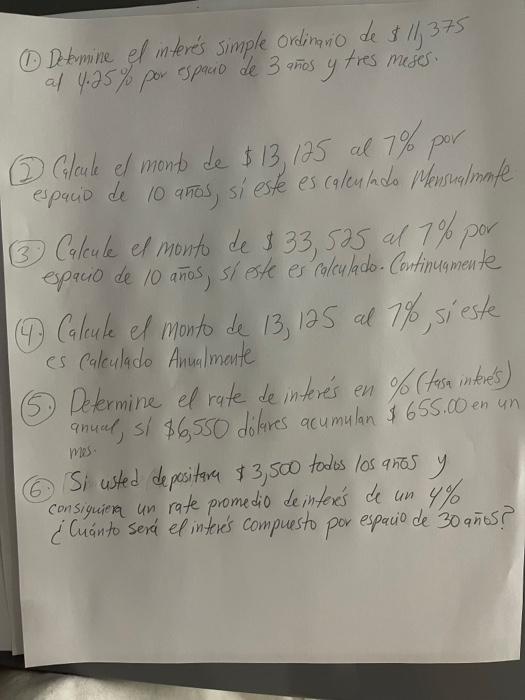 ① Determine el interés simple Ordinario de $ 11,375
al 4.25% por espacio de 3 años y tres meses.
② Calcule el monto de $ 13,125 al 7% por
espacio de 10 años, si este es calculado Mensualmente
③ Calcule el monto de $ 33,525 al 7% por
espacio de 10 años, si este es calculado. Continuamente
④ Calcule el monto de 13,125 al 7%, si este
es Calculado Anualmente
⑤ Determine el rate de interés en % (tasa interés)
anual, si $6,550 dólares acumulan $ 655.00 en un
mes.
⑥ Si usted depositara $ 3,500 todos los años y
consiguiera un rate promedio de interés de un 4%
¿Cuánto será el interés compuesto por espacio de 30 años?